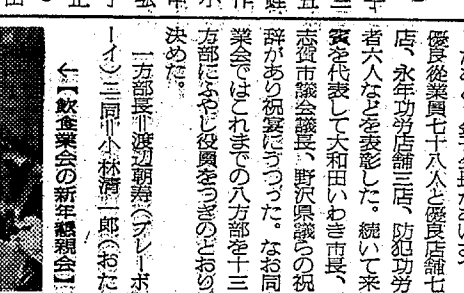 優良従業員七十八人と優良店舗七
店、永年功労店舗三店、防犯功労
者六人などを表彰した。続いて来
賓を代表して大和田いわき市長、
志賀市議会議長、野沢県議らの祝
辞があり祝宴にうつった。なお同
業会ではこれまでの八方部を十三
方部にふやし役員をつぎのとおり
決めた。
一方部長＝渡辺朝寿(プレーボ
ーイ)二同＝小林清一郎(おた
←【飲食業会の新年懇親会】